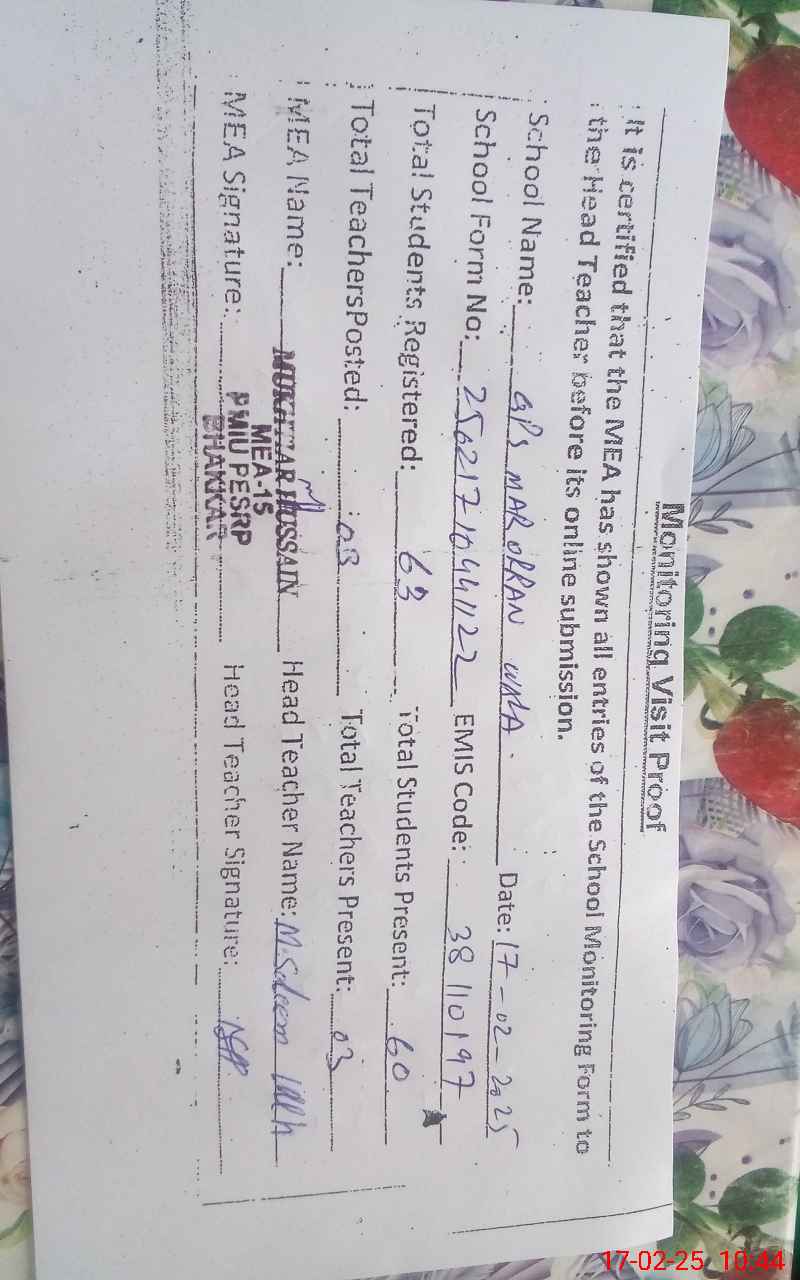 Monitoring Visit Proof
It is certified that the MEA has shown all entries of the School Monitoring Form to
the Head Teacher before its online submission.
School Name: GPS MAR ORRAN WALA. Date: 17-02-2025
School Form No: 256217 EMIS Code: 38110197
Total Students Registered: 63 Total Students Present: 60
Total TeachersPosted: 03 Total Teachers Present: 03
MEA Name: MUKHTAR HUSSAIN Head Teacher Name: M.Saleem Ullh
MEA-15
MEA Signature: PMIU PESRP Head Teacher Signature:
BHAKKAR
17-02-25 10:44